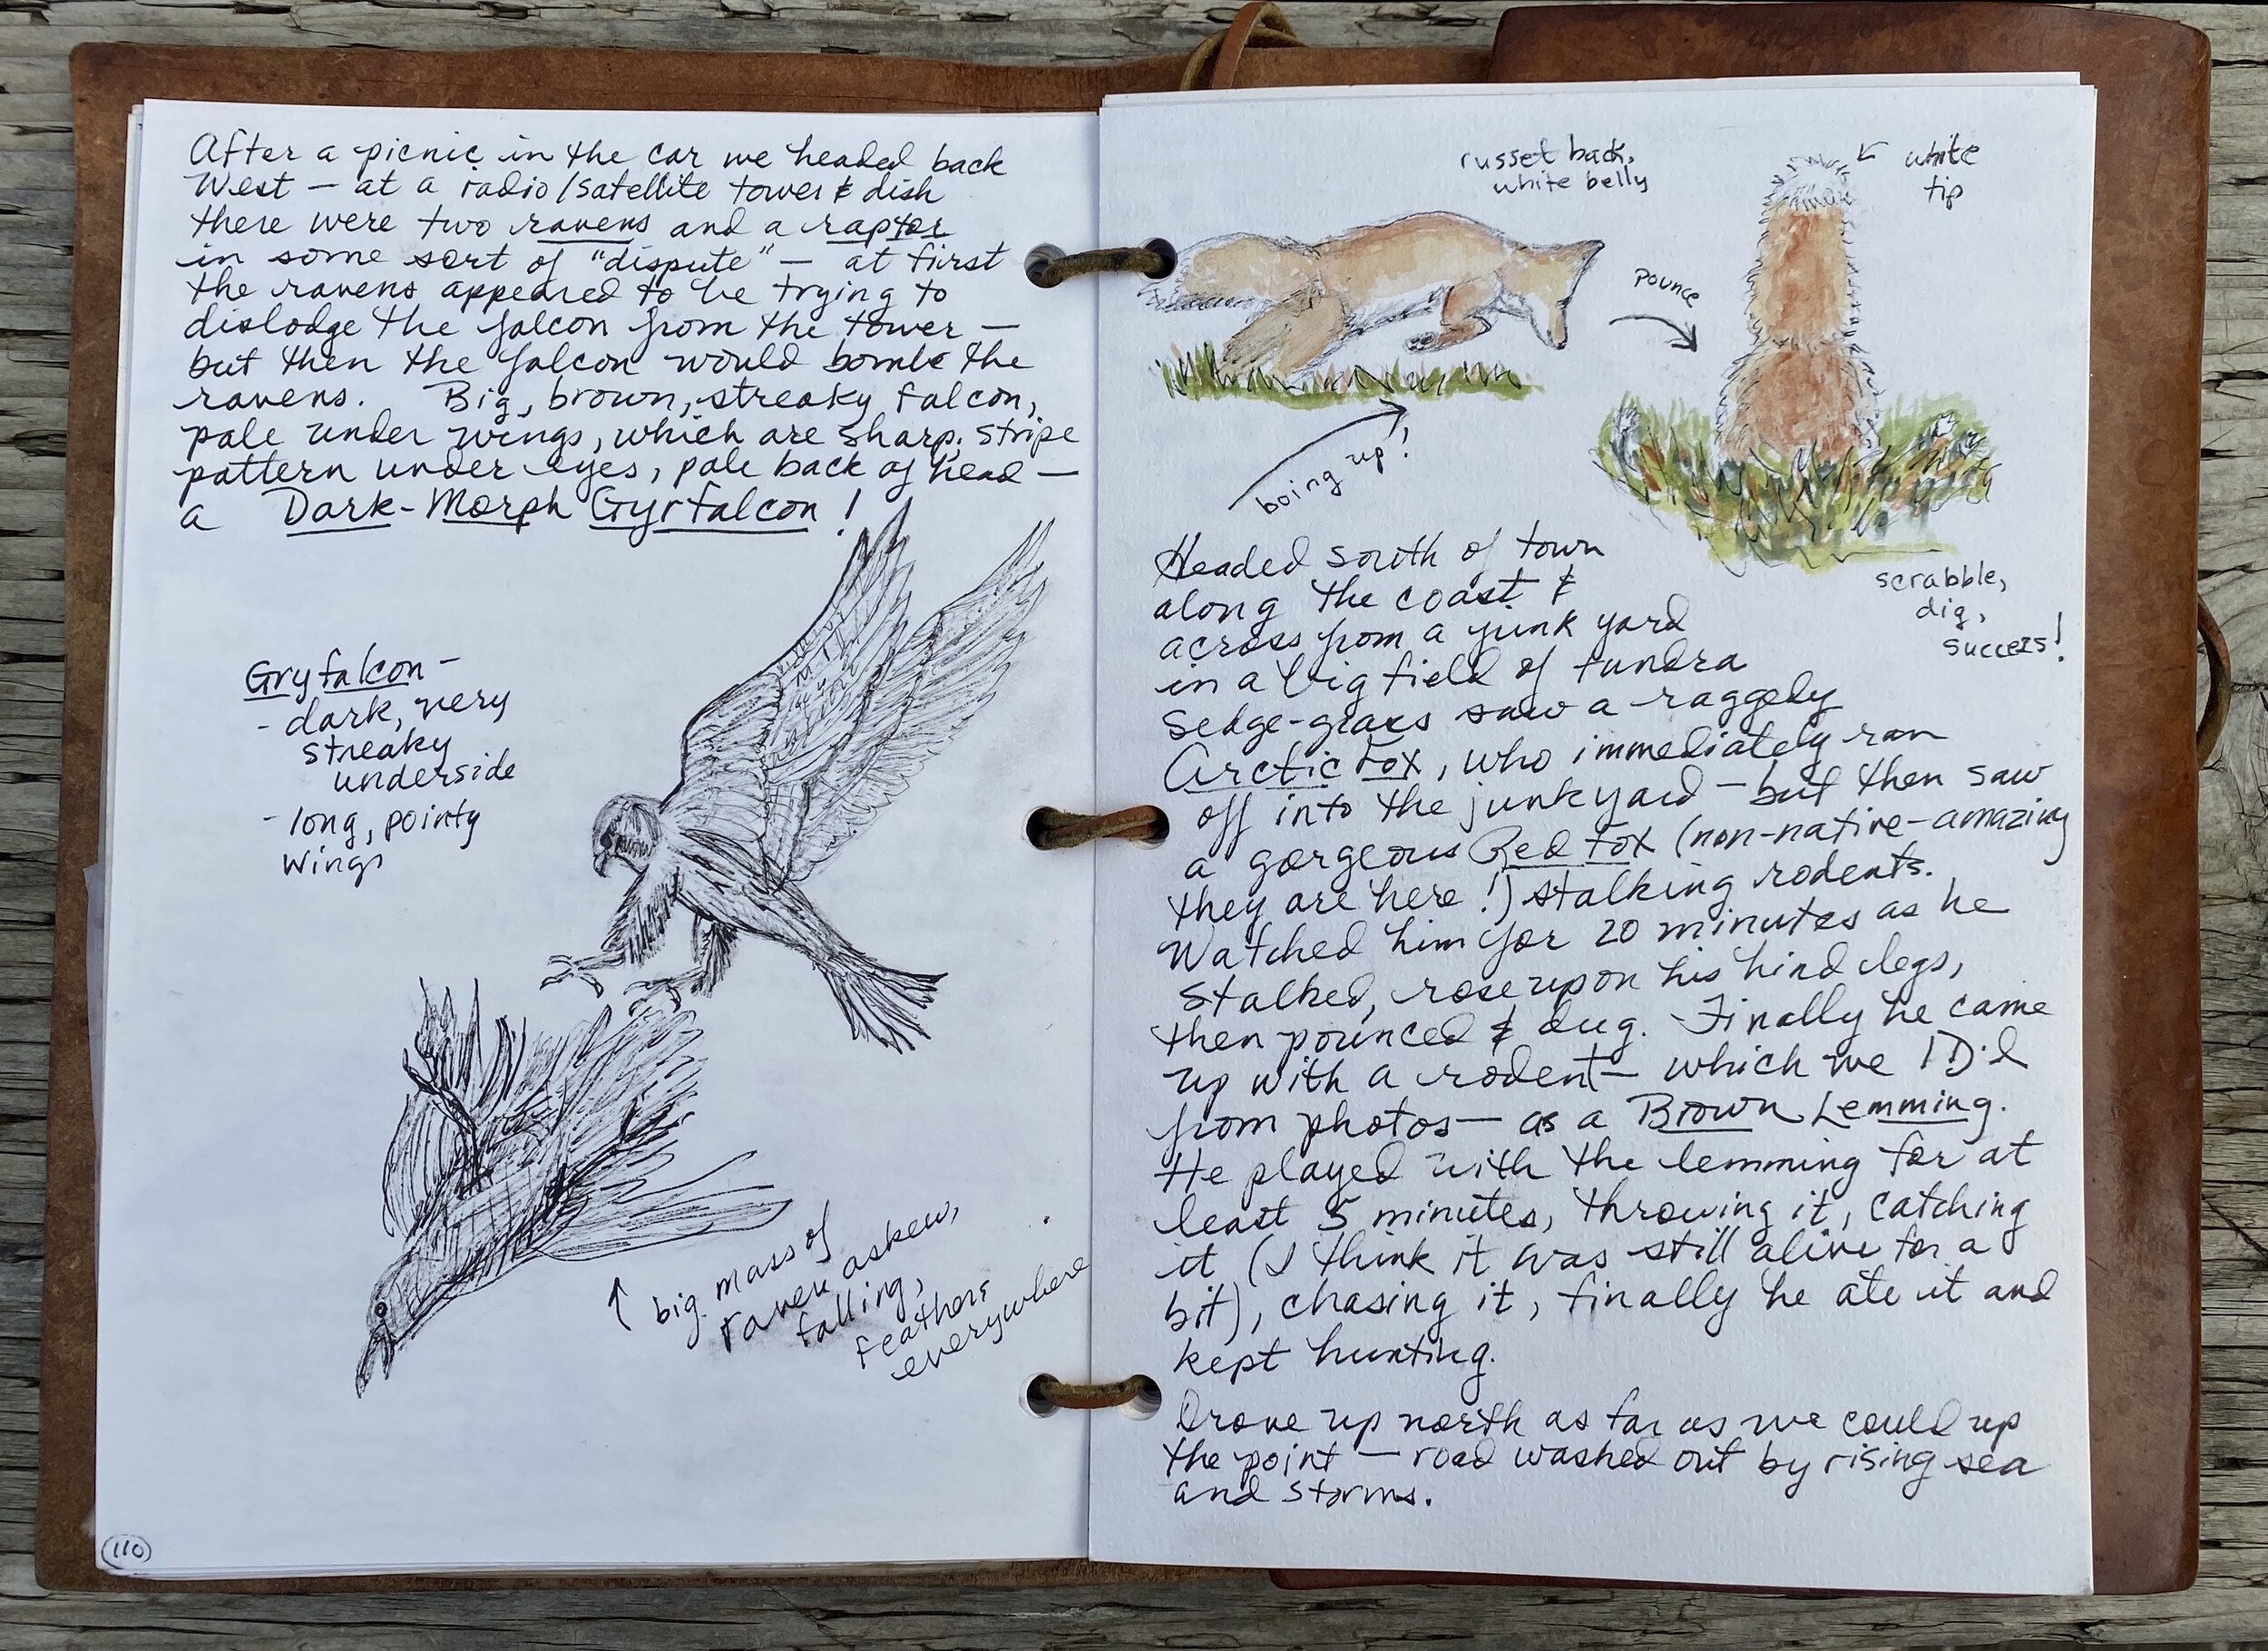 After a picnic in the car we headed back
West — at a radio/satellite tower & dish
there were two ravens and a raptor
in some sort of "dispute" — at first
the ravens appeared to be trying to
dislodge the falcon from the tower —
but then the falcon would bomb the
ravens. Big, brown, streaky falcon,
pale under wings, which are sharp. Stripe
pattern under eyes, pale back of head —
a Dark-Morph Gyrfalcon!
Gryfalcon -
- dark, very
streaky
underside
- long, pointy
wings
↑ big mass of
raven askew,
falling,
feathers
everywhere
110
russet back,
white belly
white
tip
pounce
boing up!
scrabble,
dig,
success!
Headed south of town
along the coast &
across from a junk yard
in a big field of tundra
sedge-grass saw a raggedy
Arctic Fox, who immediately ran
off into the junkyard — but then saw
a gorgeous Red Fox (non-native-amazing
they are here!) stalking rodents.
Watched him for 20 minutes as he
stalked, rose upon his hind legs,
then pounced & dug. Finally he came
up with a rodent — which we ID'd
from photos — as a Brown Lemming.
He played with the lemming for at
least 5 minutes, throwing it, catching
it (I think it was still alive for a
bit), chasing it, finally he ate it and
kept hunting.
Drove up north as far as we could up
the point — road washed out by rising sea
and storms.